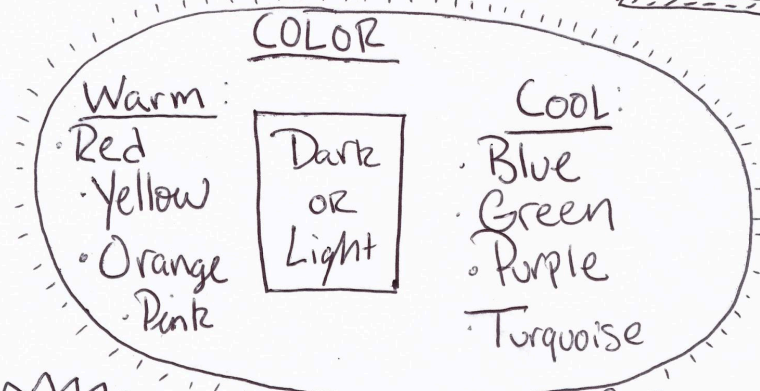 COLOR
Warm:
· Red
· Yellow
· Orange
· Pink
Dark
OR
Light
COOL:
· Blue
· Green
· Purple
· Turquoise